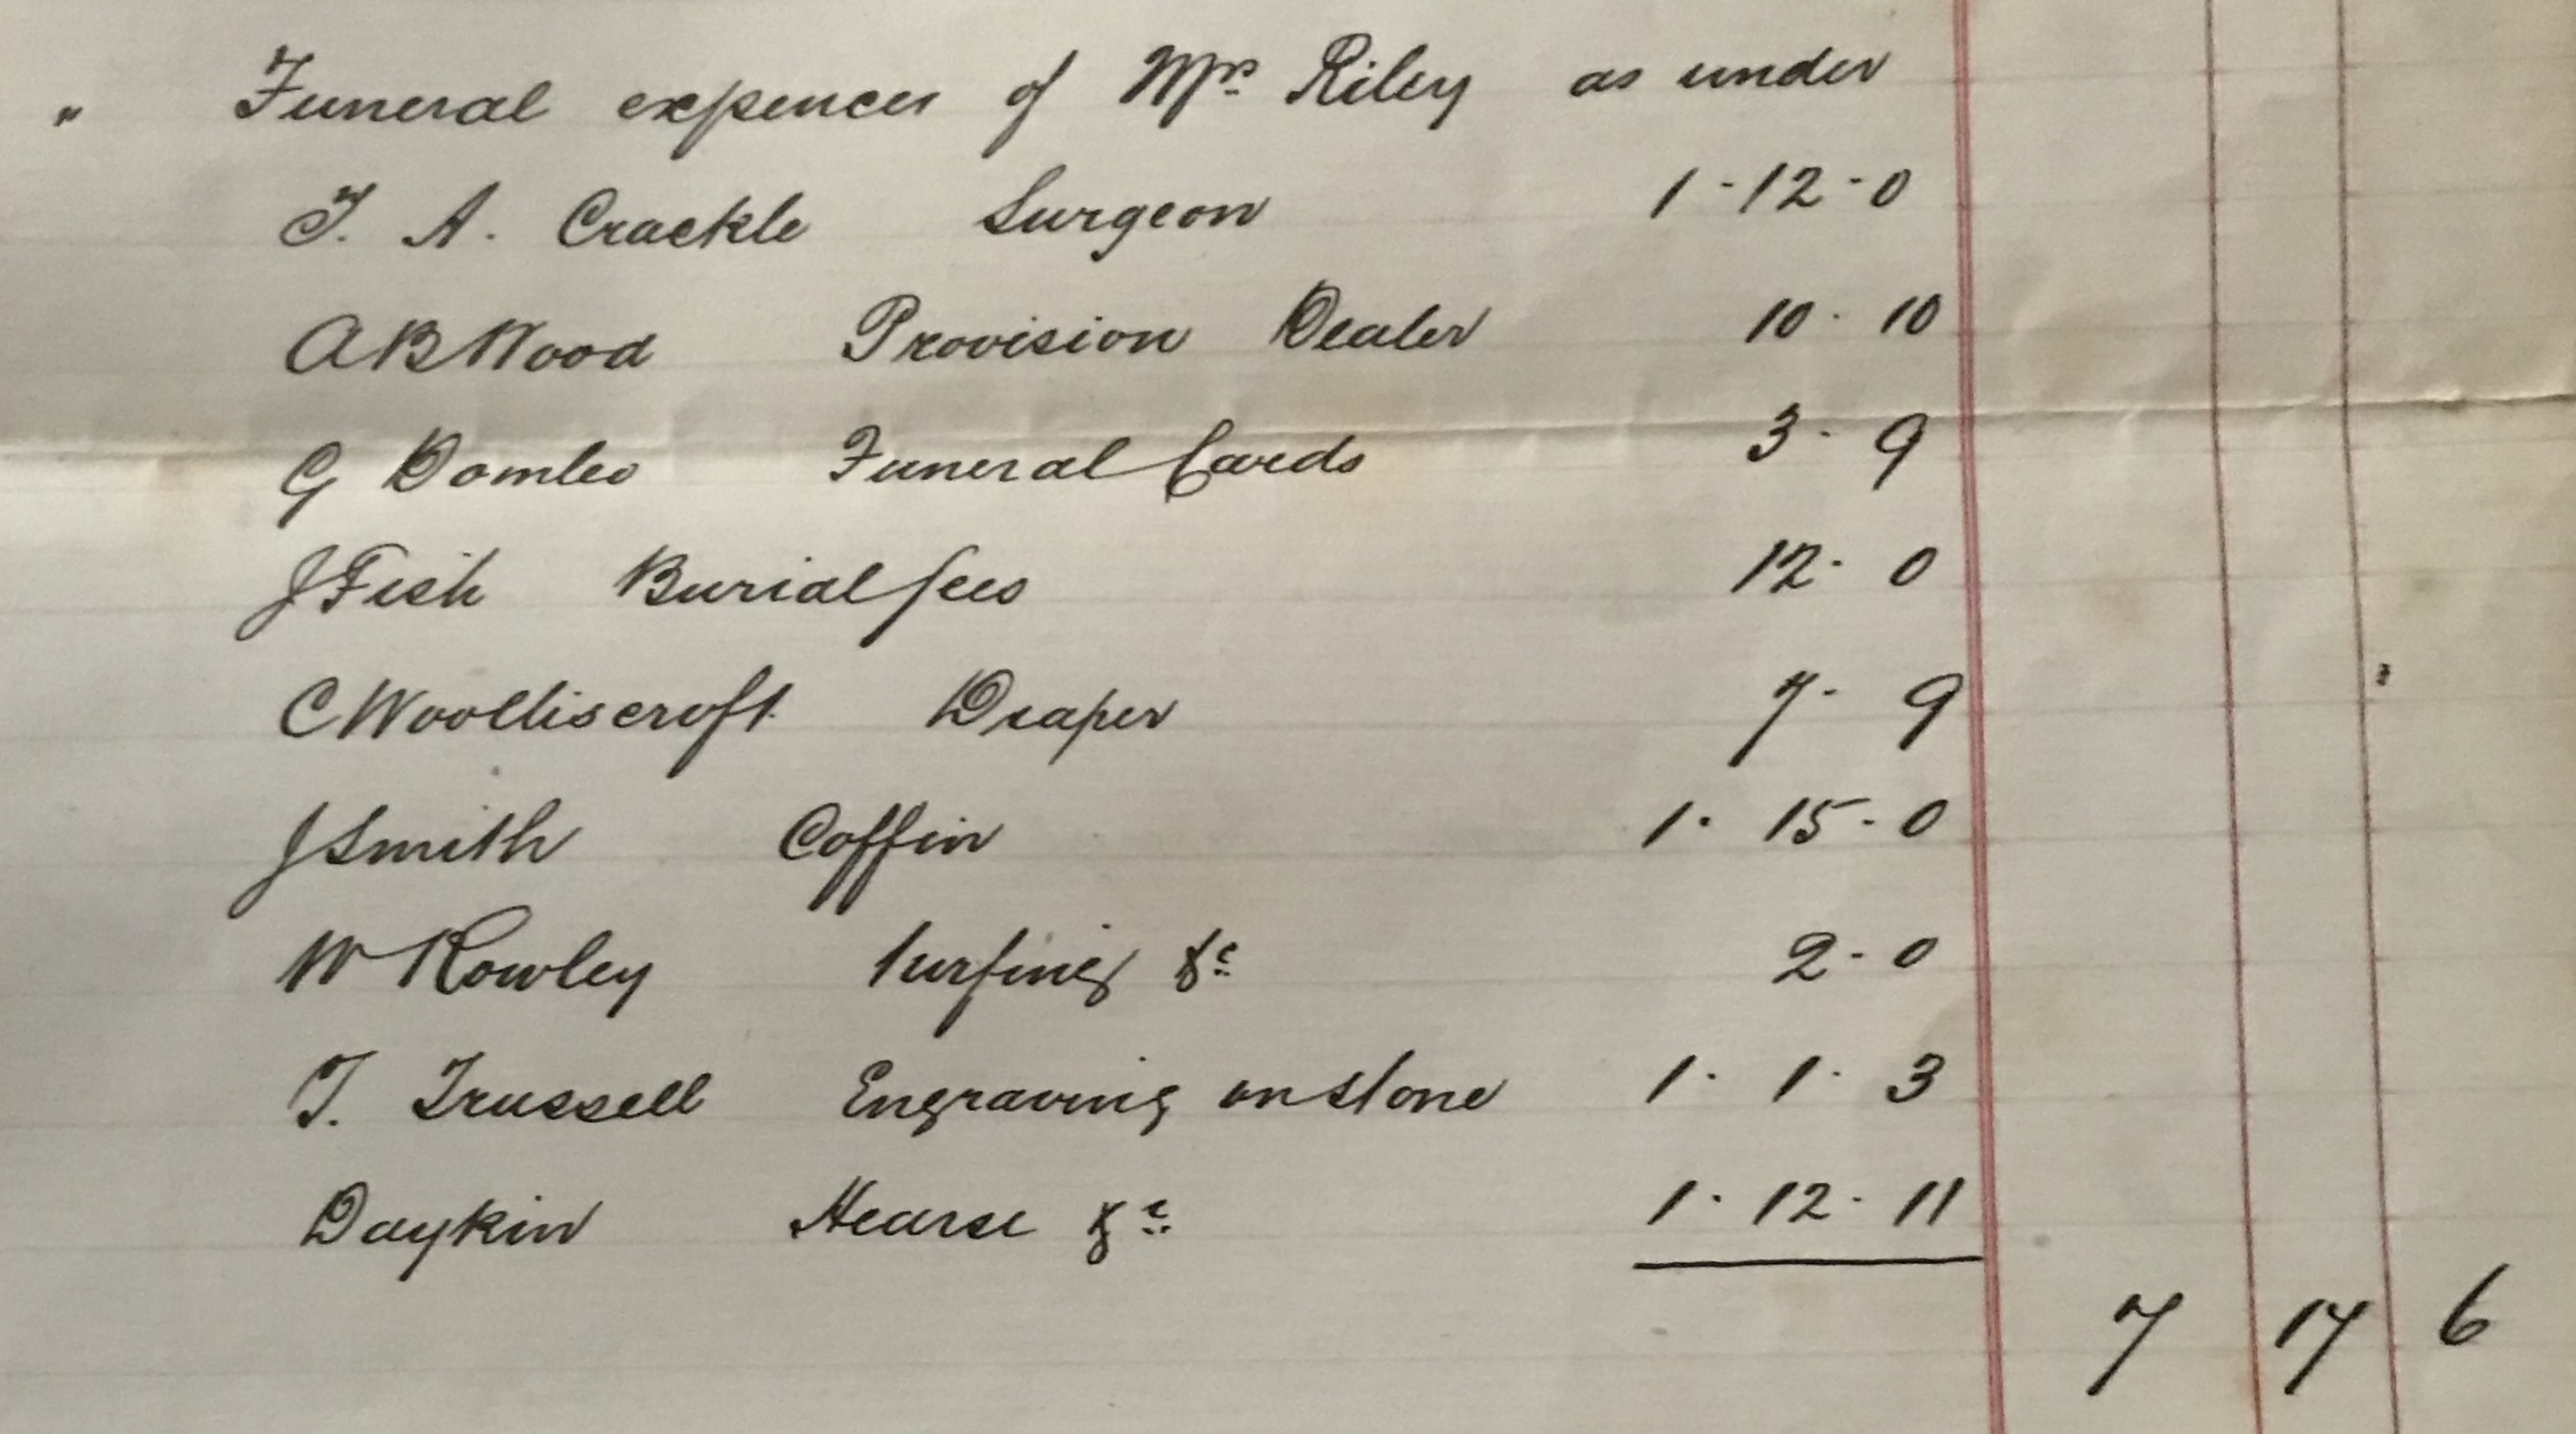 " Funeral expences of Mrs Riley as under
T. A. Crackle Surgeon 1-12-0
A B Wood Provision Dealer 10. 10
G Domleo Funeral Cards 3. 9
J Fish Burial fees 12. 0
C Woolliscroft Draper 7. 9
J Smith Coffin 1. 15. 0
W Rowley turfing &c 2. 0
T. Trussell Engraving on stone 1. 1. 3
Daykin Hearse &c 1. 12. 11
7 17 6